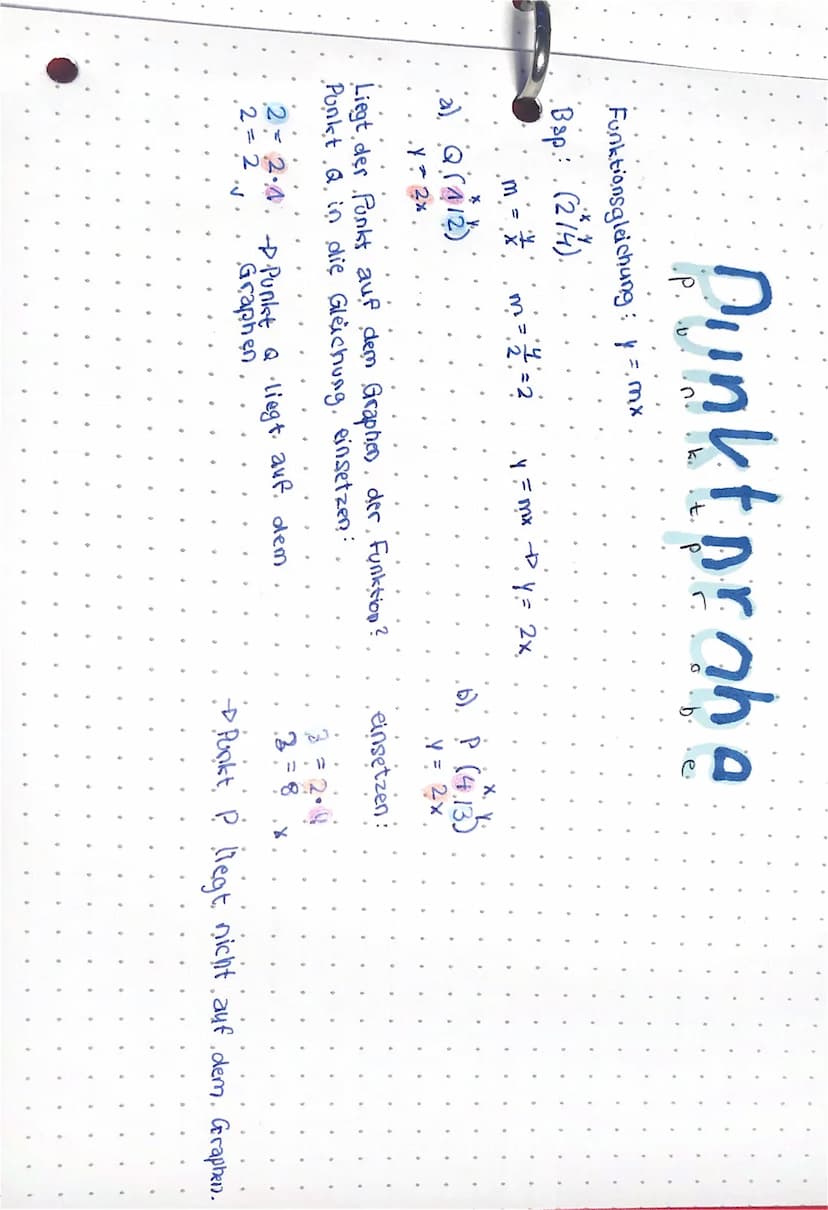 Punktprobe
p u n k t p r o b e
Funktionsgleichung: y = mx
x y
Bsp: (2/4)
m = y/x m = 4/2 = 2 y = mx → y = 2x
x y
a) Q(1/2)
y = 2x
Liegt der Punkt auf dem Graphen der Funktion?
Punkt Q in die Gleichung einsetzen:
2 = 2·1 → Punkt Q liegt auf dem
2 = 2 ✓ Graphen
x y
b) P (4/3)
y = 2x
einsetzen:
3 = 2·4
3 = 8 x
→ Punkt P liegt nicht auf dem Graphen.